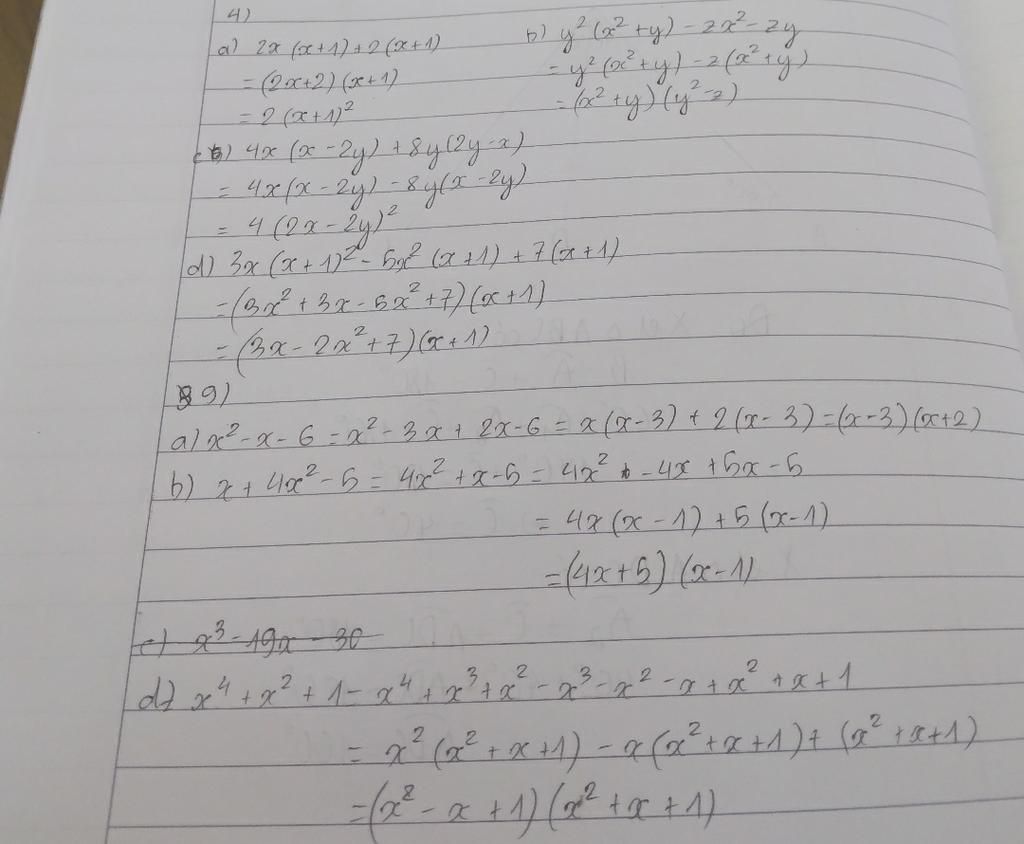 4)
a) 2x (x+1) + 2(x+1)
= (2x+2) (x+1)
= 2 (x+1)²
b) y² (x² + y) - 2x² - 2y
= y² (x² + y) - 2 (x² + y)
= (x² + y) (y² - 2)
c) 4x (x - 2y) + 8y (2y - x)
= 4x (x - 2y) - 8y (x - 2y)
= 4 (2x - 2y)²
d) 3x (x+1)² - 5x² (x+1) + 7 (x+1)
= (3x² + 3x - 5x² + 7) (x+1)
= (3x - 2x² + 7) (x+1)
9)
a) x² - x - 6 = x² - 3x + 2x - 6 = x (x-3) + 2 (x-3) = (x-3) (x+2)
b) x + 4x² - 5 = 4x² + x - 5 = 4x² - 4x + 5x - 5
= 4x (x - 1) + 5 (x-1)
= (4x+5) (x-1)
c) x³ - 19x - 30
d) x⁴ + x² + 1 = x⁴ + x³ + x² - x³ - x² - x + x² + x + 1
= x² (x² + x + 1) - x (x² + x + 1) + (x² + x + 1)
= (x² - x + 1) (x² + x + 1)